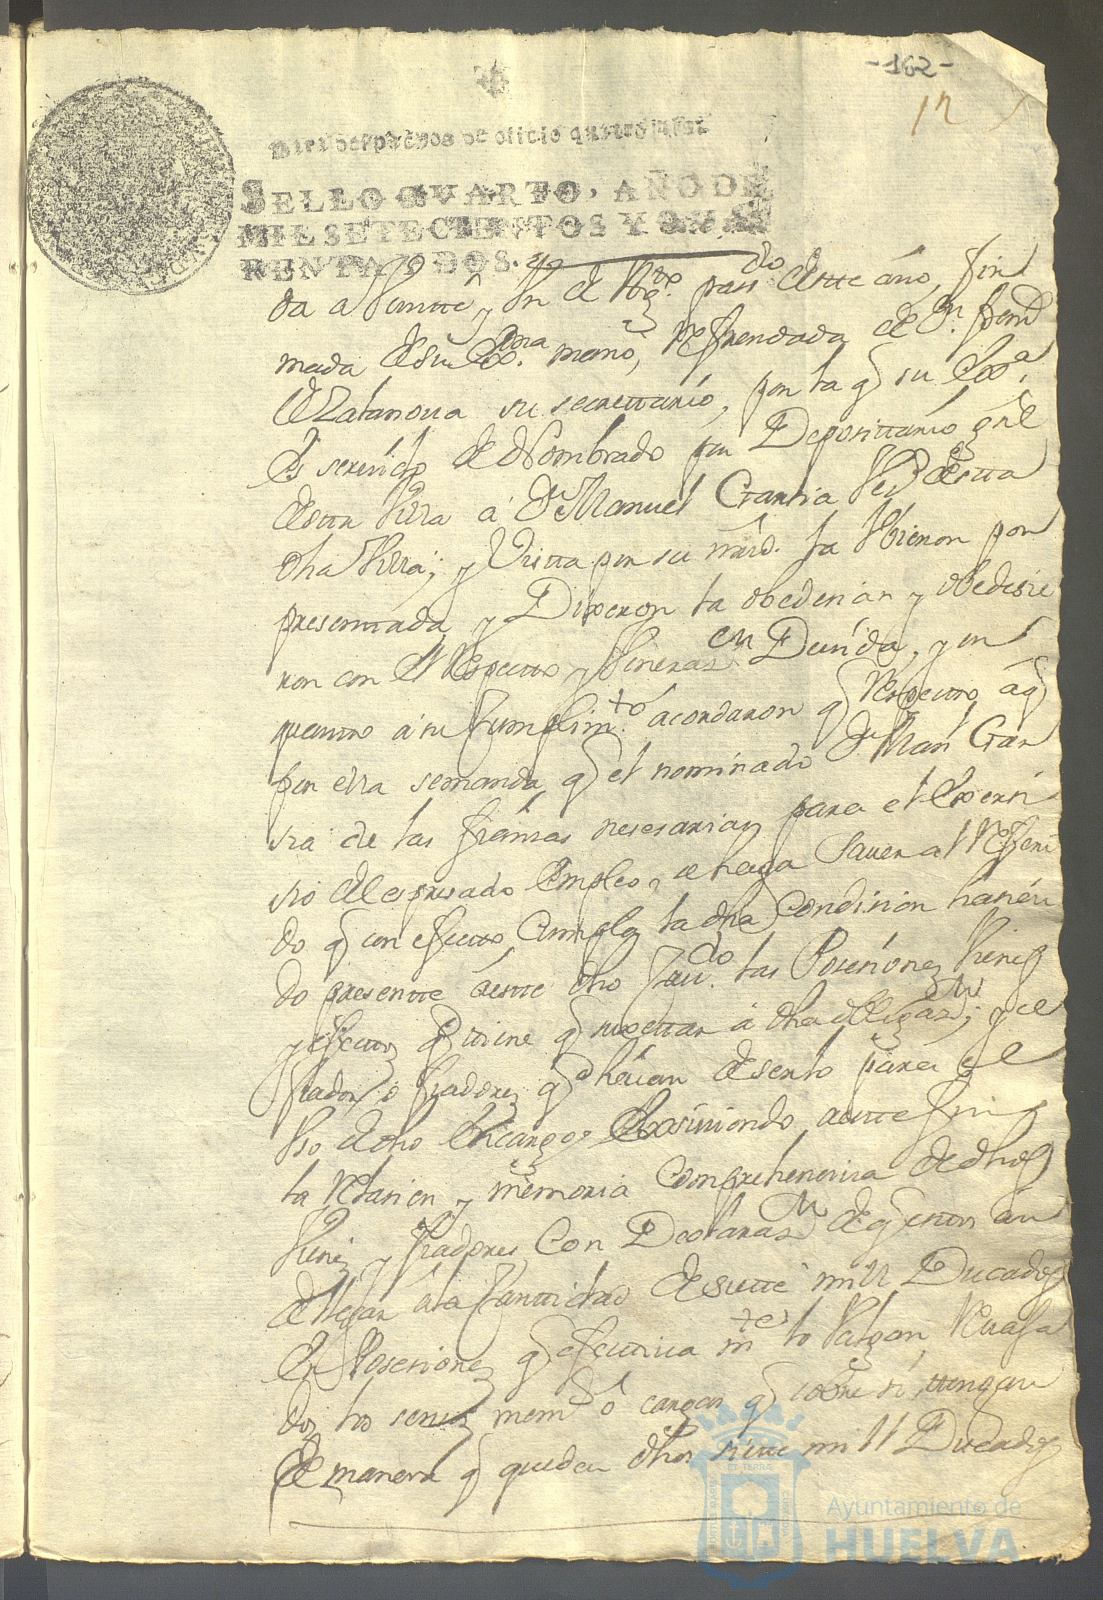 -162-
12
Para despachos de oficio quatro mrs.
SELLO QVARTO, AÑO DE
MIL SETECIENTOS Y QVA
RENTA Y DOS.
da a veintte y Un de pasdo. deste año, fir
mada de su Exa. mano, Refrendada de Dn.
su secrettario, por la q su Exa.
Es servido de Nombrado por Deposittario Gnl
desta Villa á Dn Manuel Garsia Vezo desta
dha Villa; y Vista por su mrds. la Vbieron por
presenttada y Dixeron la obedecian y obedesie
ron con el Respecto y Veneraon Devida, y en
quanto a su Cumplimto. acordaron q Respecto aq
por ella semanda, q el nominado Dn Manl Gar
sia de las fianzas nesesarias para el Exersi
sio del espresado Empleo, se haga Saver al Referi
do q con efecto Cumpla la dha Condision hasien
do presentte áeste dho las Posesiones Vienes
y efectos q tiene q sujettar á dha; y el
fiador, o fiadores q
sio de dho Encargo, Exsiviendo antte
la Relasion y memoria Comprehensiva de dhos
Vienes y fiadores, Con Declarason de q estos an
de llegar a la Canttidad de siette mill Ducados
En Posesiones q efectivamte lo Valgan, Revaja
dos los sensos, memo cargas q sobre si ttengan
de manera q queden dhos siette mill Ducados
Ayuntamiento de
HUELVA